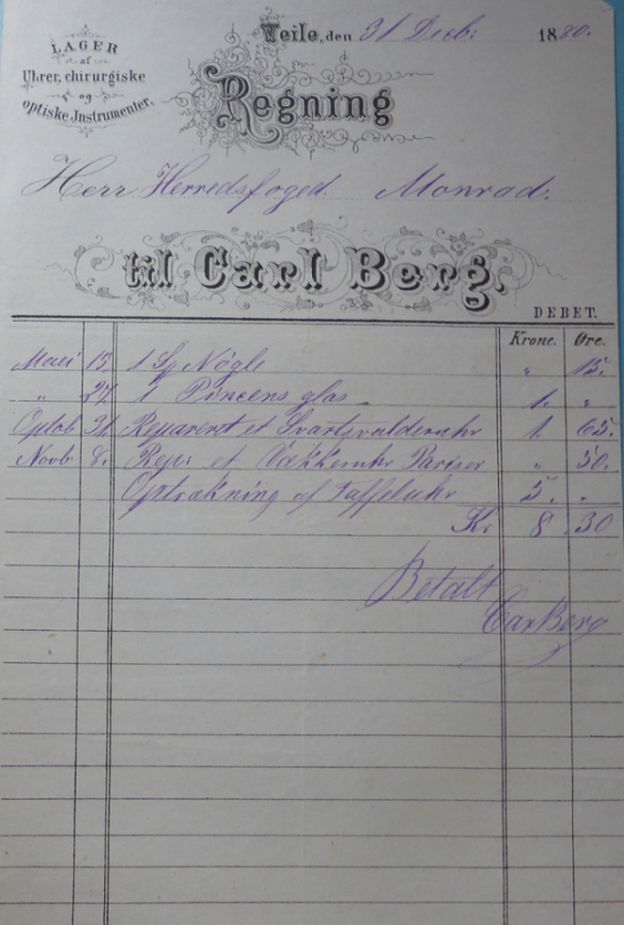 LAGER
af
Uhrer, chirurgiske
og
optiske Instrumenter.
Veile, den 31 Decb: 1880.
Regning
Herr Herredsfoged Monrad.
til Carl Berg.
DEBET.
Krone. Øre.
Maei 15. 1 Sp Nøgle " 15.
" 27. 1 Pincens glas 1. "
Optob 31. Reparert et Svartsvalderuhr 1. 65.
Novb 8. Rep: et Vækkeruhr Pariser " 50.
Optrækning af Taffeluhr 5. "
Kr 8 30
Betalt
Carl Berg